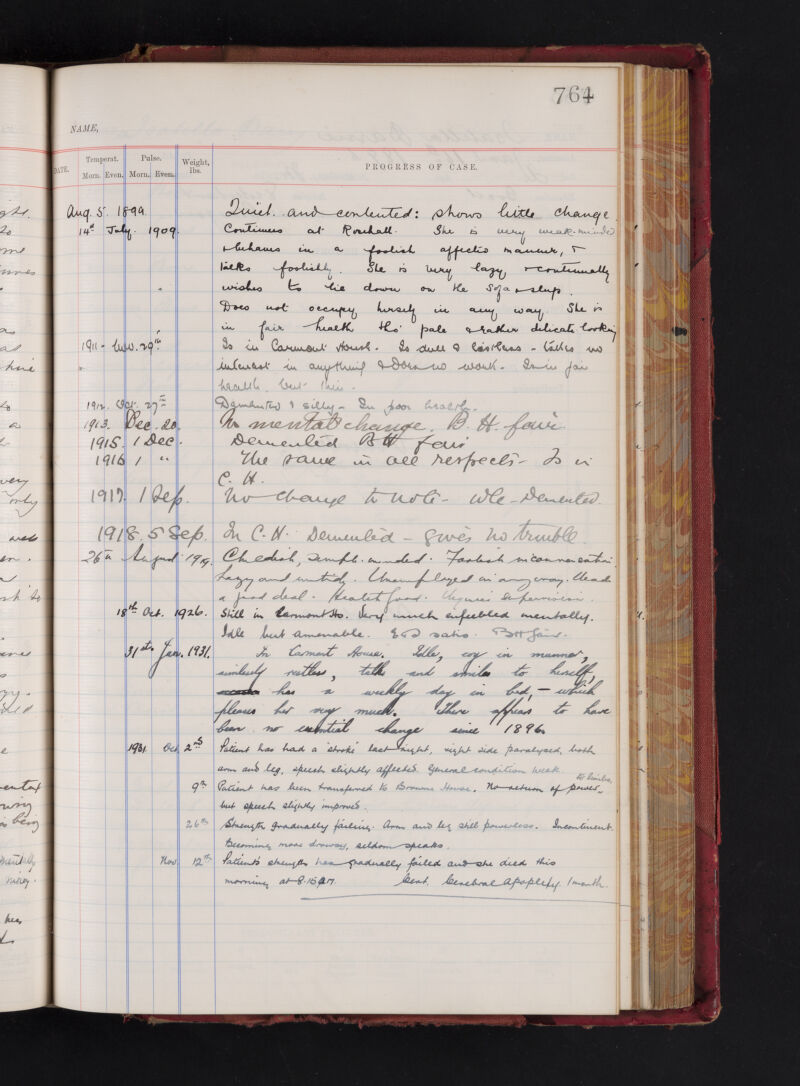 764
NAME,
DATE.
Temperat.
Pulse.
Weight, lbs.
Morn. Even. Morn. Even.
PROGRESS OF CASE.
Aug. 5. 1899 Quiet. and contented: shows little change.
14th July. 1909. Continues at Rosehall. She is very weak-minded
& behaves in a foolish affected manner, &
talks foolishly. She is very lazy & continually
wishes to lie down on the sofa & sleep.
Does not occupy herself in any way. She is
in fair health tho' pale & rather delicate looking
1911 - Nov. 29th Is in Carmont House. Is dull & listless - takes no
interest in anything & does no work. Is in fair
health, but thin.
1912. Oct. 27th Demented & silly - In poor health.
1913. Dec. 20. No mental change. B. H. fair.
1915. 1 Dec. Demented B H fair
1916 1 " The same in all respects - Is in
C. H.
1917. 1 Sep. No change to note - Idle - Demented
1918. 5 Sep. In C. H. Demented - gives no trouble.
26th August 1919. Childish, simple minded. Foolish in conversation.
Lazy and untidy. Unemployed in any way. Reads
a good deal. Health good. Requires supervision.
18th Oct. 1926. Still in Carmont Ho. Very much enfeebled mentally.
Idle but amenable. E & D satis. B H fair.
31st Jan. 1931. In Carmont House. Idle, coy in manner,
aimlessly restless, talks and smiles to herself,
has a weekly day in bed, - which
pleases her very much. There appears to have
been no essential change since 1896.
1931 Oct. 2nd Patient has had a 'stroke' last night, right side paralysed, both
arm and leg, speech slightly affected. General condition weak.
9th Patient has been transferred to Browne House. No return of power to limbs,
but speech slightly improved.
26th Strength gradually failing. Arm and leg still powerless. Incontinent.
Becoming more drowsy, seldom speaks.
Nov. 12th Patient's strength has gradually failed and she died this
morning at 8.15 am. Cert. Cerebral Apoplexy 1 month.